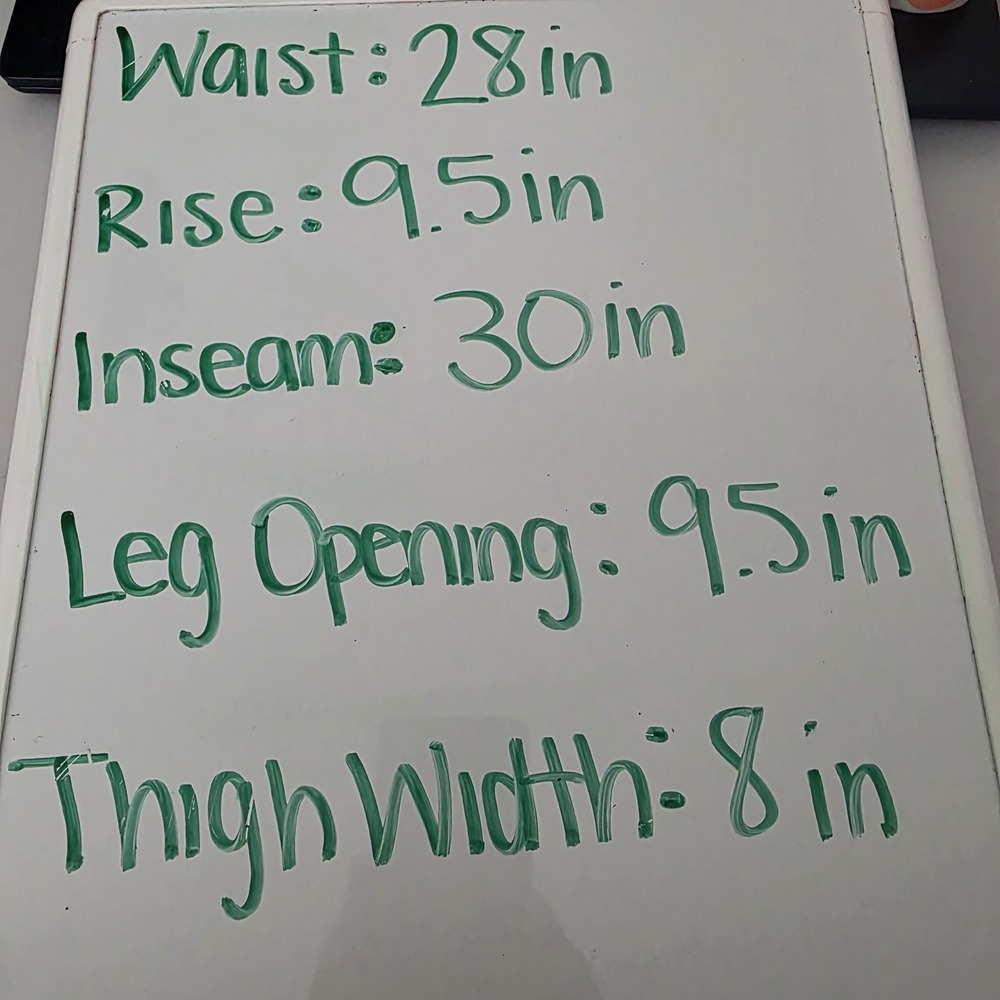 Waist: 28in
Rise: 9.5in
Inseam: 30in
Leg Opening: 9.5in
Thigh Width: 8in